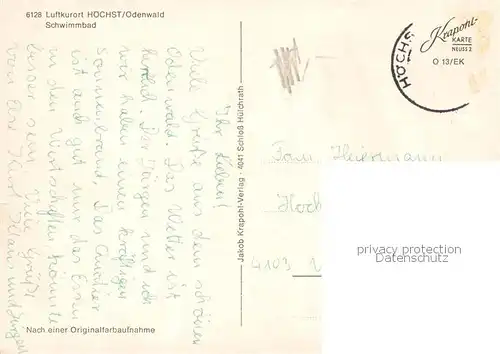 6128 Luftkurort HÖCHST/Odenwald
Schwimmbad
Ihr Lieben!
Viele Grüße aus dem schönen
Odenwald. Das Wetter ist
herrlich. Der Jürgen und ich
wir haben einen kräftigen
Sonnenbrand. Das Quartier
ist auch gut nur das Essen
in den Wirtschaften könnte
besser sein. Viele Grüße
von
Hans und Jürgen
Nach einer Originalfarbaufnahme
Jakob Krapohl-Verlag · 4041 Schloß Hülchrath
HÖCHS
Krapohl-
KARTE
NEUSS 2
O 13/EK
Frau
Hoch
4103
privacy protection
AnsichtskartenCenter